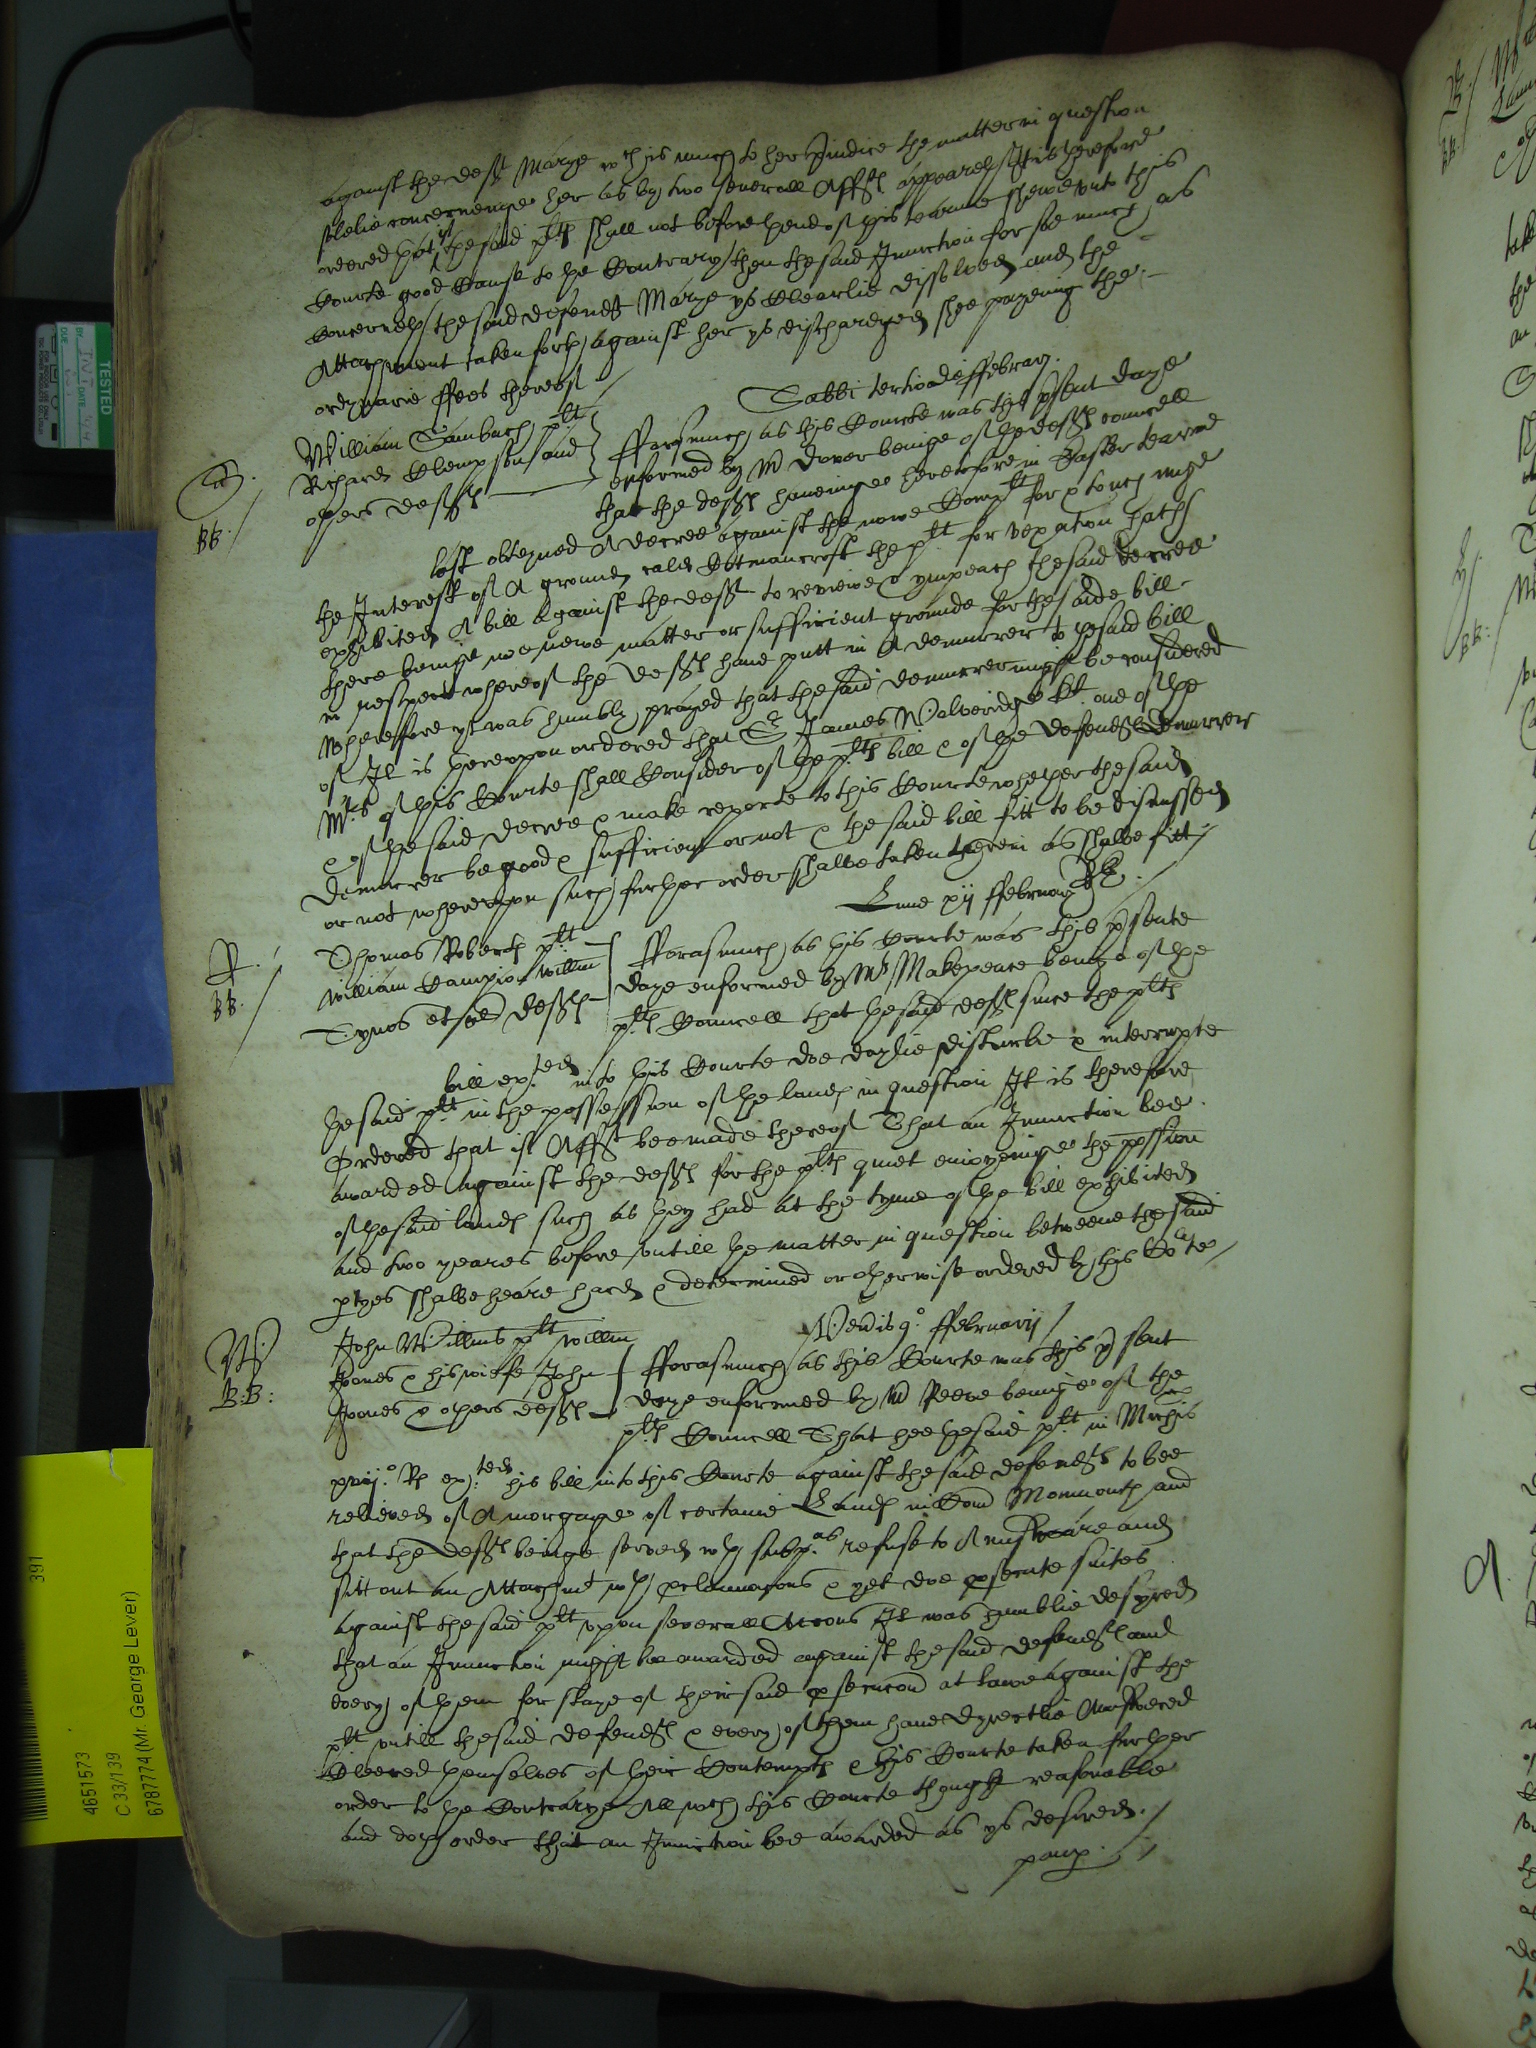 against the deft Marye wch is much to her P'iudice the matter in question
solelie concerneinge her as by two severall Affts appeareth It is therefore
ordered that yf the said plts shall not before thend of this tearme shewe unto this
Courte good Cause to the Contrary then the said Iniunction for soe much as
Concerneth the said defendt Marye ys Clearlie dissolved and the
Attachment taken forth against her ys dischardged shee payeinge the
ordynarie ffees thereof
Sabbi tertio die ffebruary.
William Sambach plt
Richard Clempson and
others defts
fforasmuch as this Courte was this psent daye
enformed by Mr Dover beinge of the defts councell
that the defts haveinge heretofore in Easter tearme
last obteyned A decree against the nowe Complt for & touchinge
the Interest of A ground called the plt for vexation hath
exhibited A bill against the deft to reviewe & ympeach the said decree
there beinge noe newe matter or sufficient grounde for the saide bill
in respect whereof the defts have putt in A demurrer to the said bill
Wherefore yt was humbly prayed that the said demurrer might be considered
of It is hereupon ordered that Sr James Wolveridge kt one of the
Mrs of this Courte shall Consider of the plts bill & of the defendts demurrer
& of the said decree & make reporte to this Courte whether the said
demurrer be good & sufficient or not & the said bill fitt to be discussed
or not whereupon such further order shalbe taken therein as shalbe fitt
Lune xij ffebruary
R.
BB.
Thomas Roberts plt
William Campion Willm
Tynos et defts
fforasmuch as this Courte was this psente
daye enformed by Mr Makepeace beinge of the
plts Councell that the said defts since the plts
bill ex:ted into this Courte doe daylie disturbe & interrupte
the said plt in the possession of the lands in question It is therefore
Ordered that if Afft bee made thereof That an Iniunction bee
awarded against the defts for the plts quiet enioyeinge the possion
of the said lands such as they had at the tyme of the bill exhibited
and two yeares before untill the matter in question betweene the said
ptyes shalbe heare hard & determined or otherwise ordered by this Cote
W.
B:B:
ffebruarij
John Willms plt Willm
Jones & his wiefe John
Jones & others defts
fforasmuch as this Courte was this psent
daye enformed by Mr Reeve beinge of the
plts Councell That hee the said plt in Michis
Rs ex:ted his bill into this Courte against the said defendts to bee
releived of A morgage of certaine Lands in Com Monmouth and
that the defts beinge served wth subp:as refuse to Answeare and
sitt out an Attachmt wth proclamacons & yet doe prosecute suites
against the said plt upon severall Accons It was humblie desyred
that an Iniunction might be awarded against the said defendts and
every of them for staye of their said prosecucon at Lawe against the
plt untill the said defendts & every of them have dyrectlie Answered
Cleered themselves of their Contempts & this Courte taken further
order to the Contrarye All which this Courte thought reasonable
and doth order that an Iniunction bee awarded as ys desired.
TESTED
391
4651573
C 33/139
6787774 (Mr. George Lever)